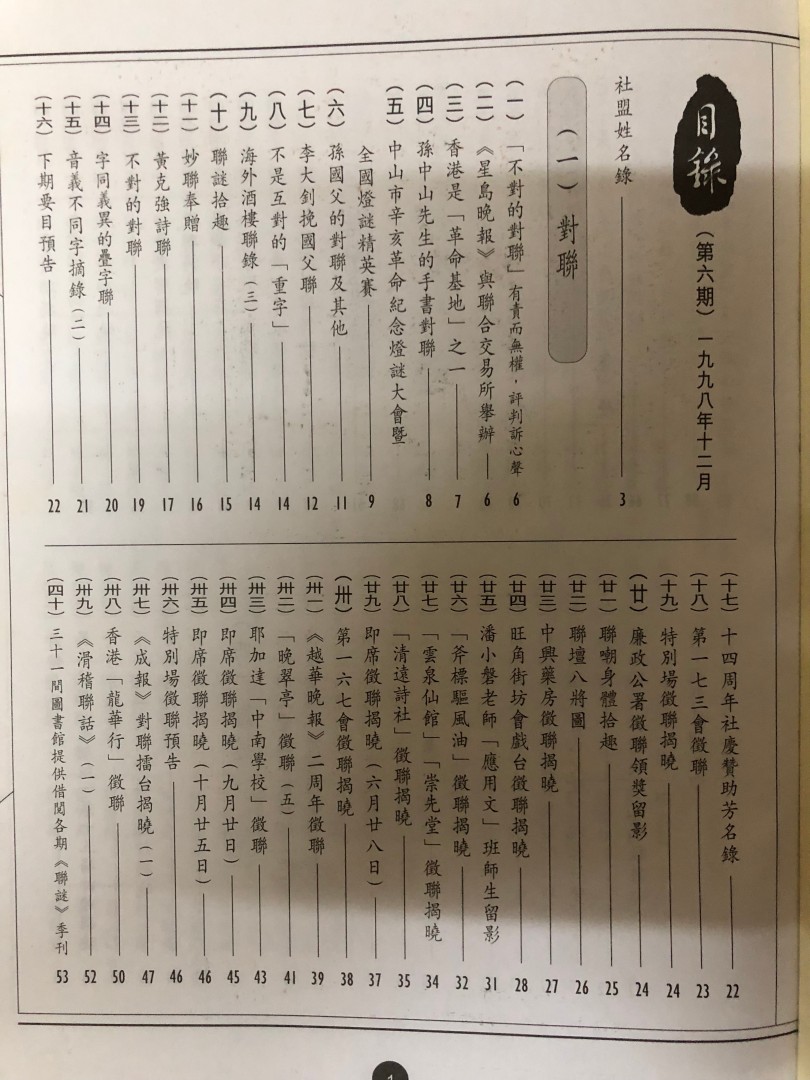 目錄
（第六期） 一九九八年十二月
社盟姓名錄 3
（一）對聯
（一）「不對的對聯」有責而無權，評判訴心聲 6
（二）《星島晚報》與聯合交易所舉辦 6
（三）香港是「革命基地」之一 7
（四）孫中山先生的手書對聯 8
（五）中山市辛亥革命紀念燈謎大會暨
全國燈謎精英賽 9
（六）孫國父的對聯及其他 11
（七）李大釗挽國父聯 12
（八）不是互對的「重字」 14
（九）海外酒樓聯錄（三） 14
（十）聯謎拾趣 15
（十一）妙聯奉贈 16
（十二）黃克強詩聯 17
（十三）不對的對聯 19
（十四）字同義異的疊字聯 20
（十五）音義不同字摘錄（二） 21
（十六）下期要目預告 22
（十七）十四周年社慶贊助芳名錄 22
（十八）第一七三會徵聯 23
（十九）特別場徵聯揭曉 24
（廿）廉政公署徵聯領獎留影 24
（廿一）聯嘲身體拾趣 25
（廿二）聯壇八將圖 26
（廿三）中興藥房徵聯揭曉 27
（廿四）旺角街坊會戲台徵聯揭曉 28
（廿五）潘小磐老師「應用文」班師生留影 31
（廿六）「斧標驅風油」徵聯揭曉 32
（廿七）「雲泉仙館」「崇先堂」徵聯揭曉 34
（廿八）「清遠詩社」徵聯揭曉 35
（廿九）即席徵聯揭曉（六月廿八日） 37
（卅）第一六七會徵聯揭曉 38
（卅一）《越華晚報》二周年徵聯 39
（卅二）「晚翠亭」徵聯（五） 41
（卅三）耶加達「中南學校」徵聯 43
（卅四）即席徵聯揭曉（九月廿日） 45
（卅五）即席徵聯揭曉（十月廿五日） 46
（卅六）特別場徵聯預告 46
（卅七）《成報》對聯擂台揭曉（一） 47
（卅八）香港「龍華行」徵聯 50
（卅九）《滑稽聯話》（一） 52
（四十）三十一間圖書館提供借閱各期《聯謎》季刊 53
1